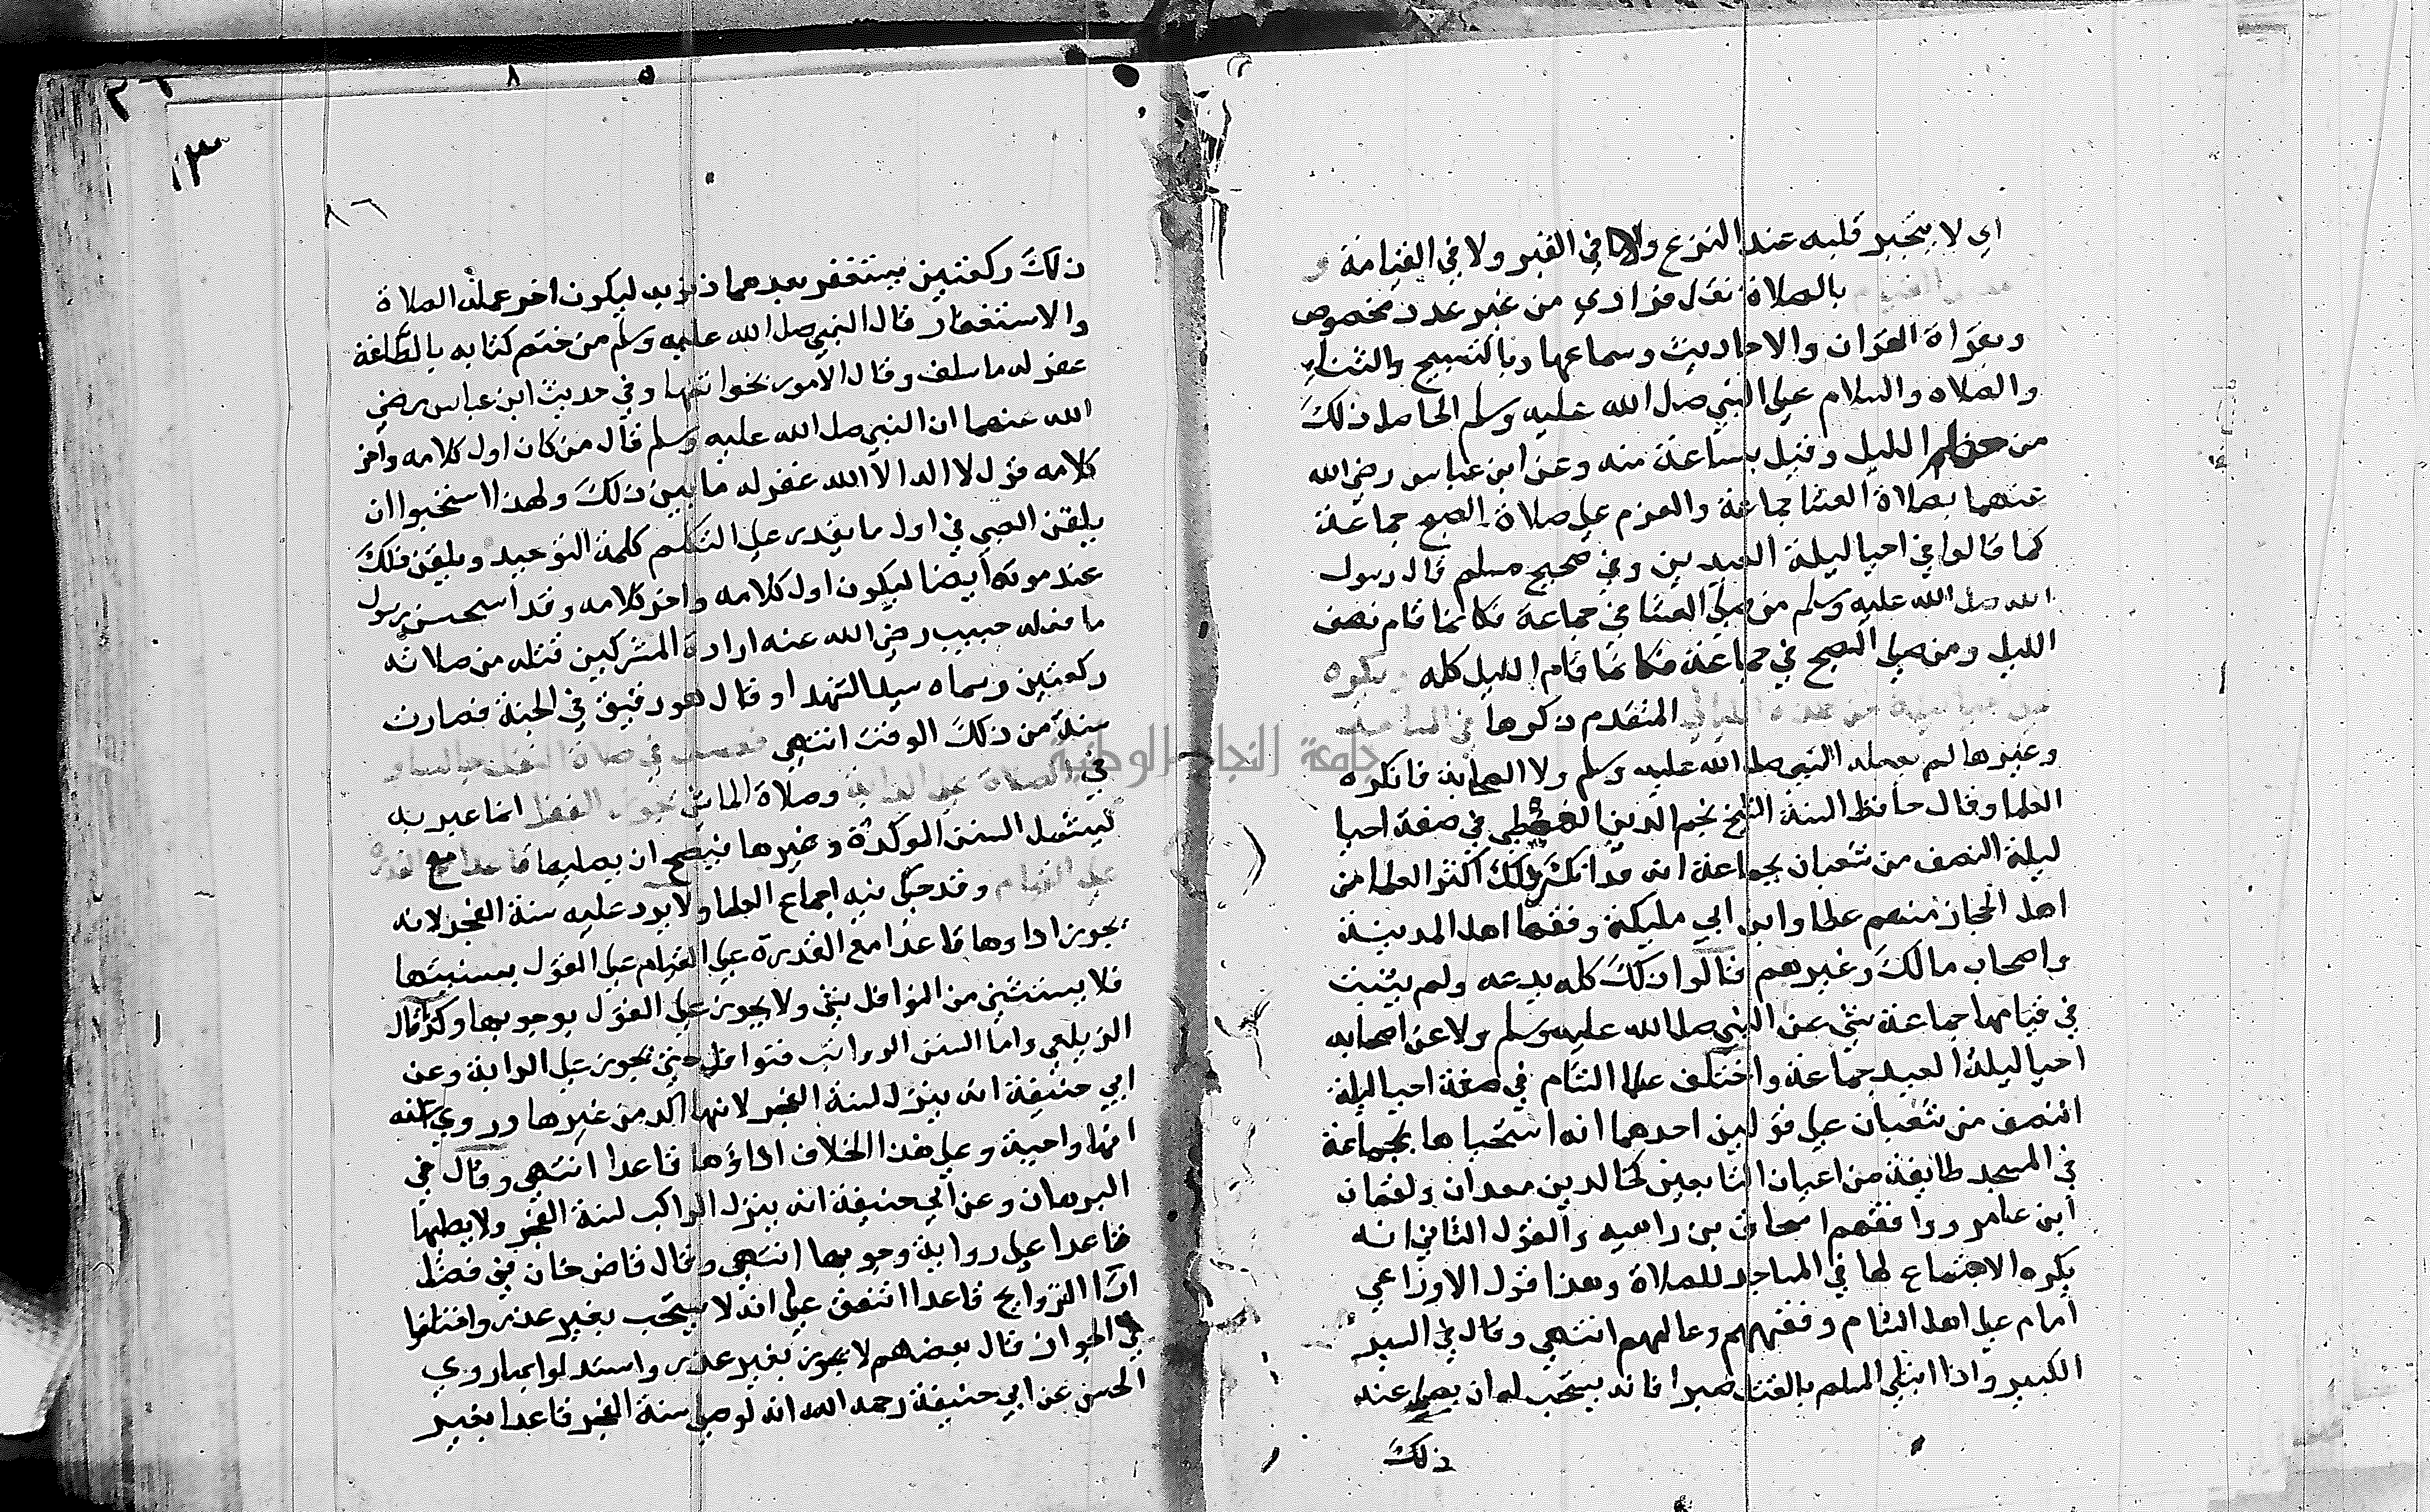 اي لا يتحير قلبه عند النزع ولا في القبر ولا في القيامة و
القيام بالصلاة نفل فرادي من غير عدد مخصوص
وبقراة القران والاحاديث وسماعها وبالتسبيح والثنا
والصلاه والسلام علي النبي صلي الله عليه وسلم الحاصل ذلك
من معظم الليل وقيل بساعة منه وعن ابن عباس رضي الله
عنهما بصلاة العشا جماعة والعزم علي صلاة الصبح جماعة
كما قالوا في احيا ليلة العيدين وفي صحيح مسلم قال رسول
الله صلي الله عليه وسلم من صلي العشا في جماعة فكانما قام نصف
الليل ومن صلي الصبح في جماعة فكانما قام الليل كله ويكره
علي احيا ليلة من هذه الليالي المتقدم ذكرها في المساجد
وغيرها لم يفعله النبي صلي الله عليه وسلم ولا الصحابة فانكره
العلما وقال حافظ السنة الشيخ نجم الدين الغيطي في صفة احيا
ليلة النصف من شعبان بجماعة انه قد انكر ذلك اكثر العلما من
اهل الحجاز منهم عطا وابن ابي مليكة وفقها اهل المدينة
واصحاب مالك وغيرهم قالوا ذلك كله بدعه ولم يثبت
في قيامها جماعة شي عن النبي صلي الله عليه وسلم ولا عن اصحابه
احيا ليلة العيد جماعة واختلف علما الشام في صفة احيا ليلة
النصف من شعبان علي قولين احدهما انه استحباها بجماعة
في المسجد طايفة من اعيان التابعين كخالد بن معدان ولقمان
ابن عامر ووافقهم اسحاق بن راهيه والقول الثاني انه
يكره الاجتماع لها في المساجد للصلاة وهذا قول الاوزاعي
امام علي اهل الشام وفقيههم وعالمهم انتهي وقال في السير
الكبير واذا ابتلي المسلم بالقتل صبرا فانه يستحب له ان يصلي عند
ذلك
٢٦
٨ ٥
١٣
٨٦
ذلك ركعتين يستغفر بعدهما ذنوبه ليكون اخر عمله الصلاة
والاستغفار قال النبي صلي الله عليه وسلم من ختم كتابه بالطاعة
غفر له ما سلف وقال الامور بخواتمها وفي حديث ابن عباس رضي
الله عنهما ان النبي صلي الله عليه وسلم قال من كان اول كلامه واخر
كلامه قول لا اله الا الله غفر له ما بين ذلك ولهذا استحبوا ان
يلقن الصبي في اول ما يقدر علي التكلم كلمة التوحيد ويلقن ذلك
عند موته ايضا ليكون اول كلامه واخر كلامه وقد استحسن رسول
ما فعله حبيب رضي الله عنه ارادة المشركين قتله من صلاته
ركعتين وسماه سيد الشهدا وقال هو رفيقي في الجنة فصارت
سنة من ذلك الوقت انتهي فصل في صلاة النفل جالسا و
في الصلاة علي الدابة وصلاة الماشي يجوز النفل انما عبر به
ليشمل السنن الموكدة وغيرها فيصح ان يصليها قاعدا مع القدرة
علي القيام وقد حكي فيه اجماع العلما ولا يرد عليه سنة الفجر لانه
يجوز اداوها قاعدا مع القدرة علي القيام علي القول بسنيتها
فلا يستثني من النوافل شي ولا يجوز علي القول بوجوبها وكذا قال
الزيلعي واما السنن الرواتب فنوافل حتي تجوز علي الدابة وعن
ابي حنيفة انه ينزل لسنة الفجر لانها اكد من غيرها وروي عنه
انها واجبة وعلي هذا الخلاف اداؤها قاعدا انتهي وقال في
البرهان وعن ابي حنيفة انه ينزل الراكب لسنة الفجر ولا يصليها
قاعدا علي رواية وجوبها انتهي وقال قاضي خان في فصل
ادا التراويح قاعدا اتفق علي انه لا يستحب بغير عذر واختلفوا
في الجواز قال بعضهم لا يجوز بغير عذر واستدلوا بما روي
الحسن عن ابي حنيفة رحمه الله انه لو صلي سنة الفجر قاعدا بغير
جامعة النجاح الوطنية